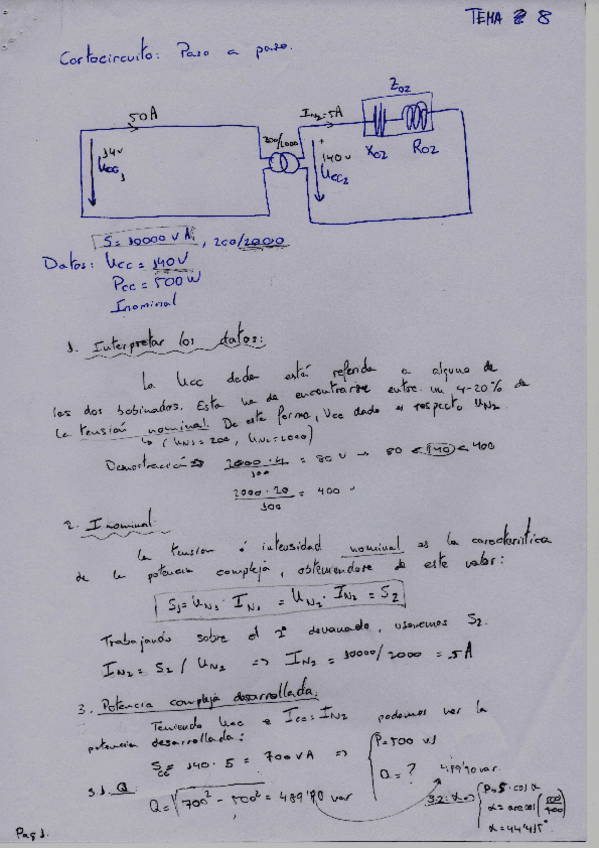 TEMA 8
Cortocircuito: Paso a paso.
Z02
50A
IN2=5A
200/2000
14v
Ucc1
+
140v
Ucc2
X02
R02
S=10000 VA, 200/2000
Datos: Ucc = 140V
Pcc = 500W
Inominal
1. Interpretar los datos:
La Ucc dada está referida a alguno de
los dos bobinados. Esta ha de encontrarse entre un 4-20% de
la tensión nominal. De este forma, Ucc dado es respecto UN2
↳ (UN1=200, UN2=2000)
Demostración → 2000·4/100 = 80 v → 80 < 140 < 400
2000·20/100 = 400 v
2. Inominal:
La tension ó intensidad nominal es la característica
de la potencia compleja, obteniendose de este valor:
S1=UN1·IN1 = UN2·IN2 = S2
Trabajando sobre el 2º devanado, usaremos S2.
IN2 = S2 / UN2 => IN2 = 10000/2000 = 5A
3. Potencia compleja desarrollada.
Teniendo Ucc e Icc=IN2 podemos ver la
potencia desarrollada:
Scc = 140·5 = 700 VA =>
P=500 W
Q=? 489'90 var.
3.1. Q
Q=√700²-500² = 489'90 var
3.2: α =>
P=S·cos α
α=arccos(500/700)
α=44'415°
Pag 1.